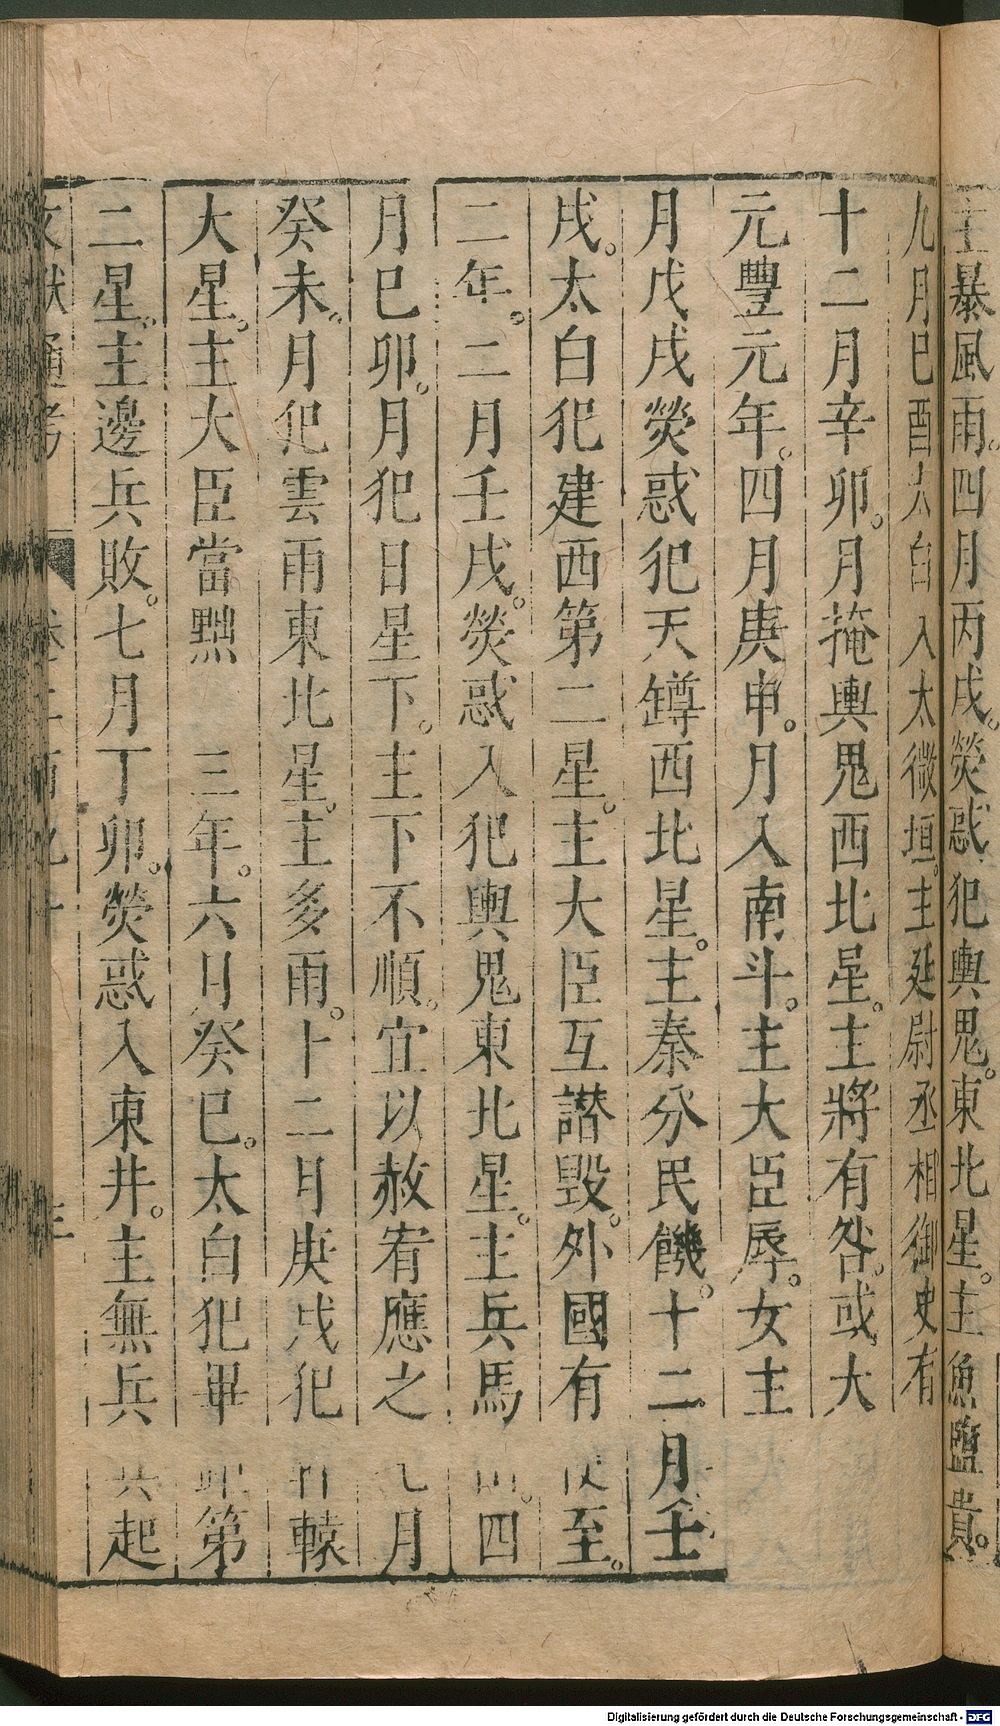 主暴風雨。四月丙戌。熒惑犯輿鬼。東北星。主魚鹽貴。
九月巳酉太白入太微垣。主廷尉丞相御史有
十二月辛卯。月掩輿鬼西北星。主將有咎。或大
元豐元年。四月庚申。月入南斗。主大臣辱。女主
月戊戌熒惑犯天罇西北星。主秦分民饑。十二月壬
戌。太白犯建西第二星。主大臣互譖毀。外國有使至。
二年。二月壬戌。熒惑入犯輿鬼東北星。主兵馬 四
月巳卯。月犯日星下。主下不順。宜以赦宥應之 七月
癸未。月犯雲雨東北星。主多雨。十二月庚戌犯軒轅
大星。主大臣當黜 三年。六月癸巳。太白犯畢 第
二星。主邊兵敗。七月丁卯。熒惑入東井。主無兵兵起
文獻通考
Digitalisierung gefördert durch die Deutsche Forschungsgemeinschaft - DFG